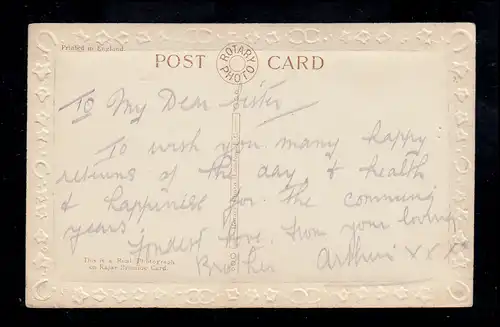 Printed in England
POST CARD
ROTARY PHOTO
To My Dear Sister
To wish you many happy
returns of the day, & health
& happiness for the comming
years,
fondest love, from your loving
Brother Arthur x x x
This is a Real Photograph
on Rajar Bromide Card.